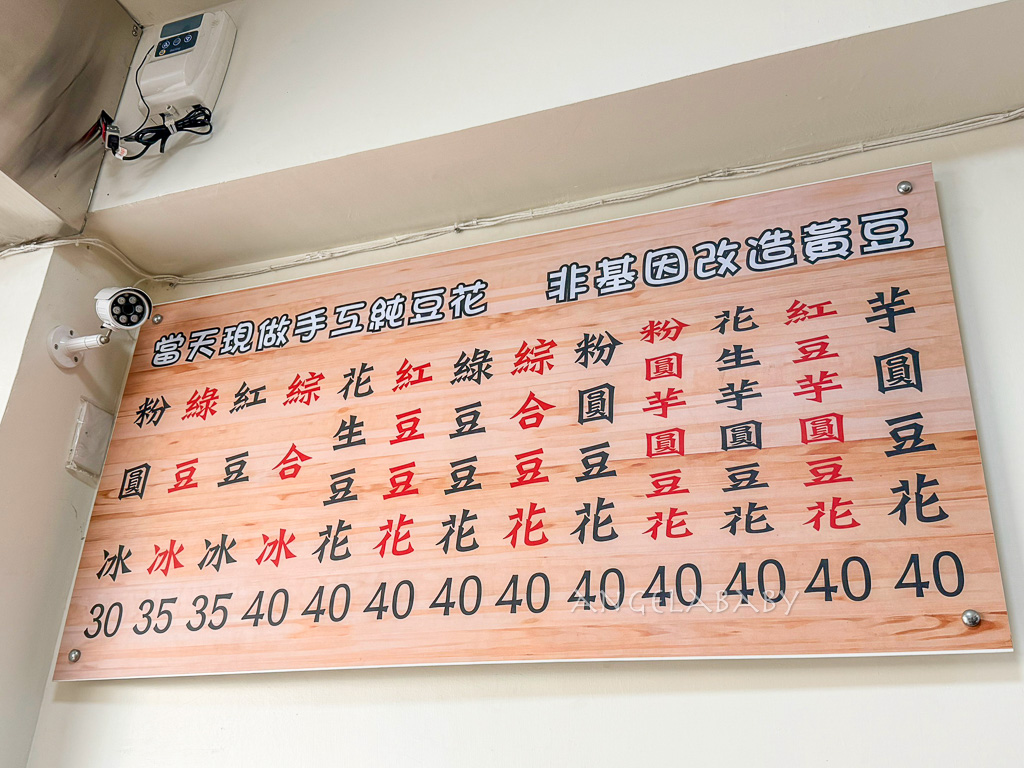 當天現做手工純豆花 非基因改造黃豆
粉圓冰 30
綠豆冰 35
紅豆冰 35
綜合冰 40
花生豆花 40
紅豆豆花 40
綠豆豆花 40
綜合豆花 40
粉圓豆花 40
粉圓芋圓豆花 40
花生芋圓豆花 40
紅豆芋圓豆花 40
芋圓豆花 40
ANGELABABY